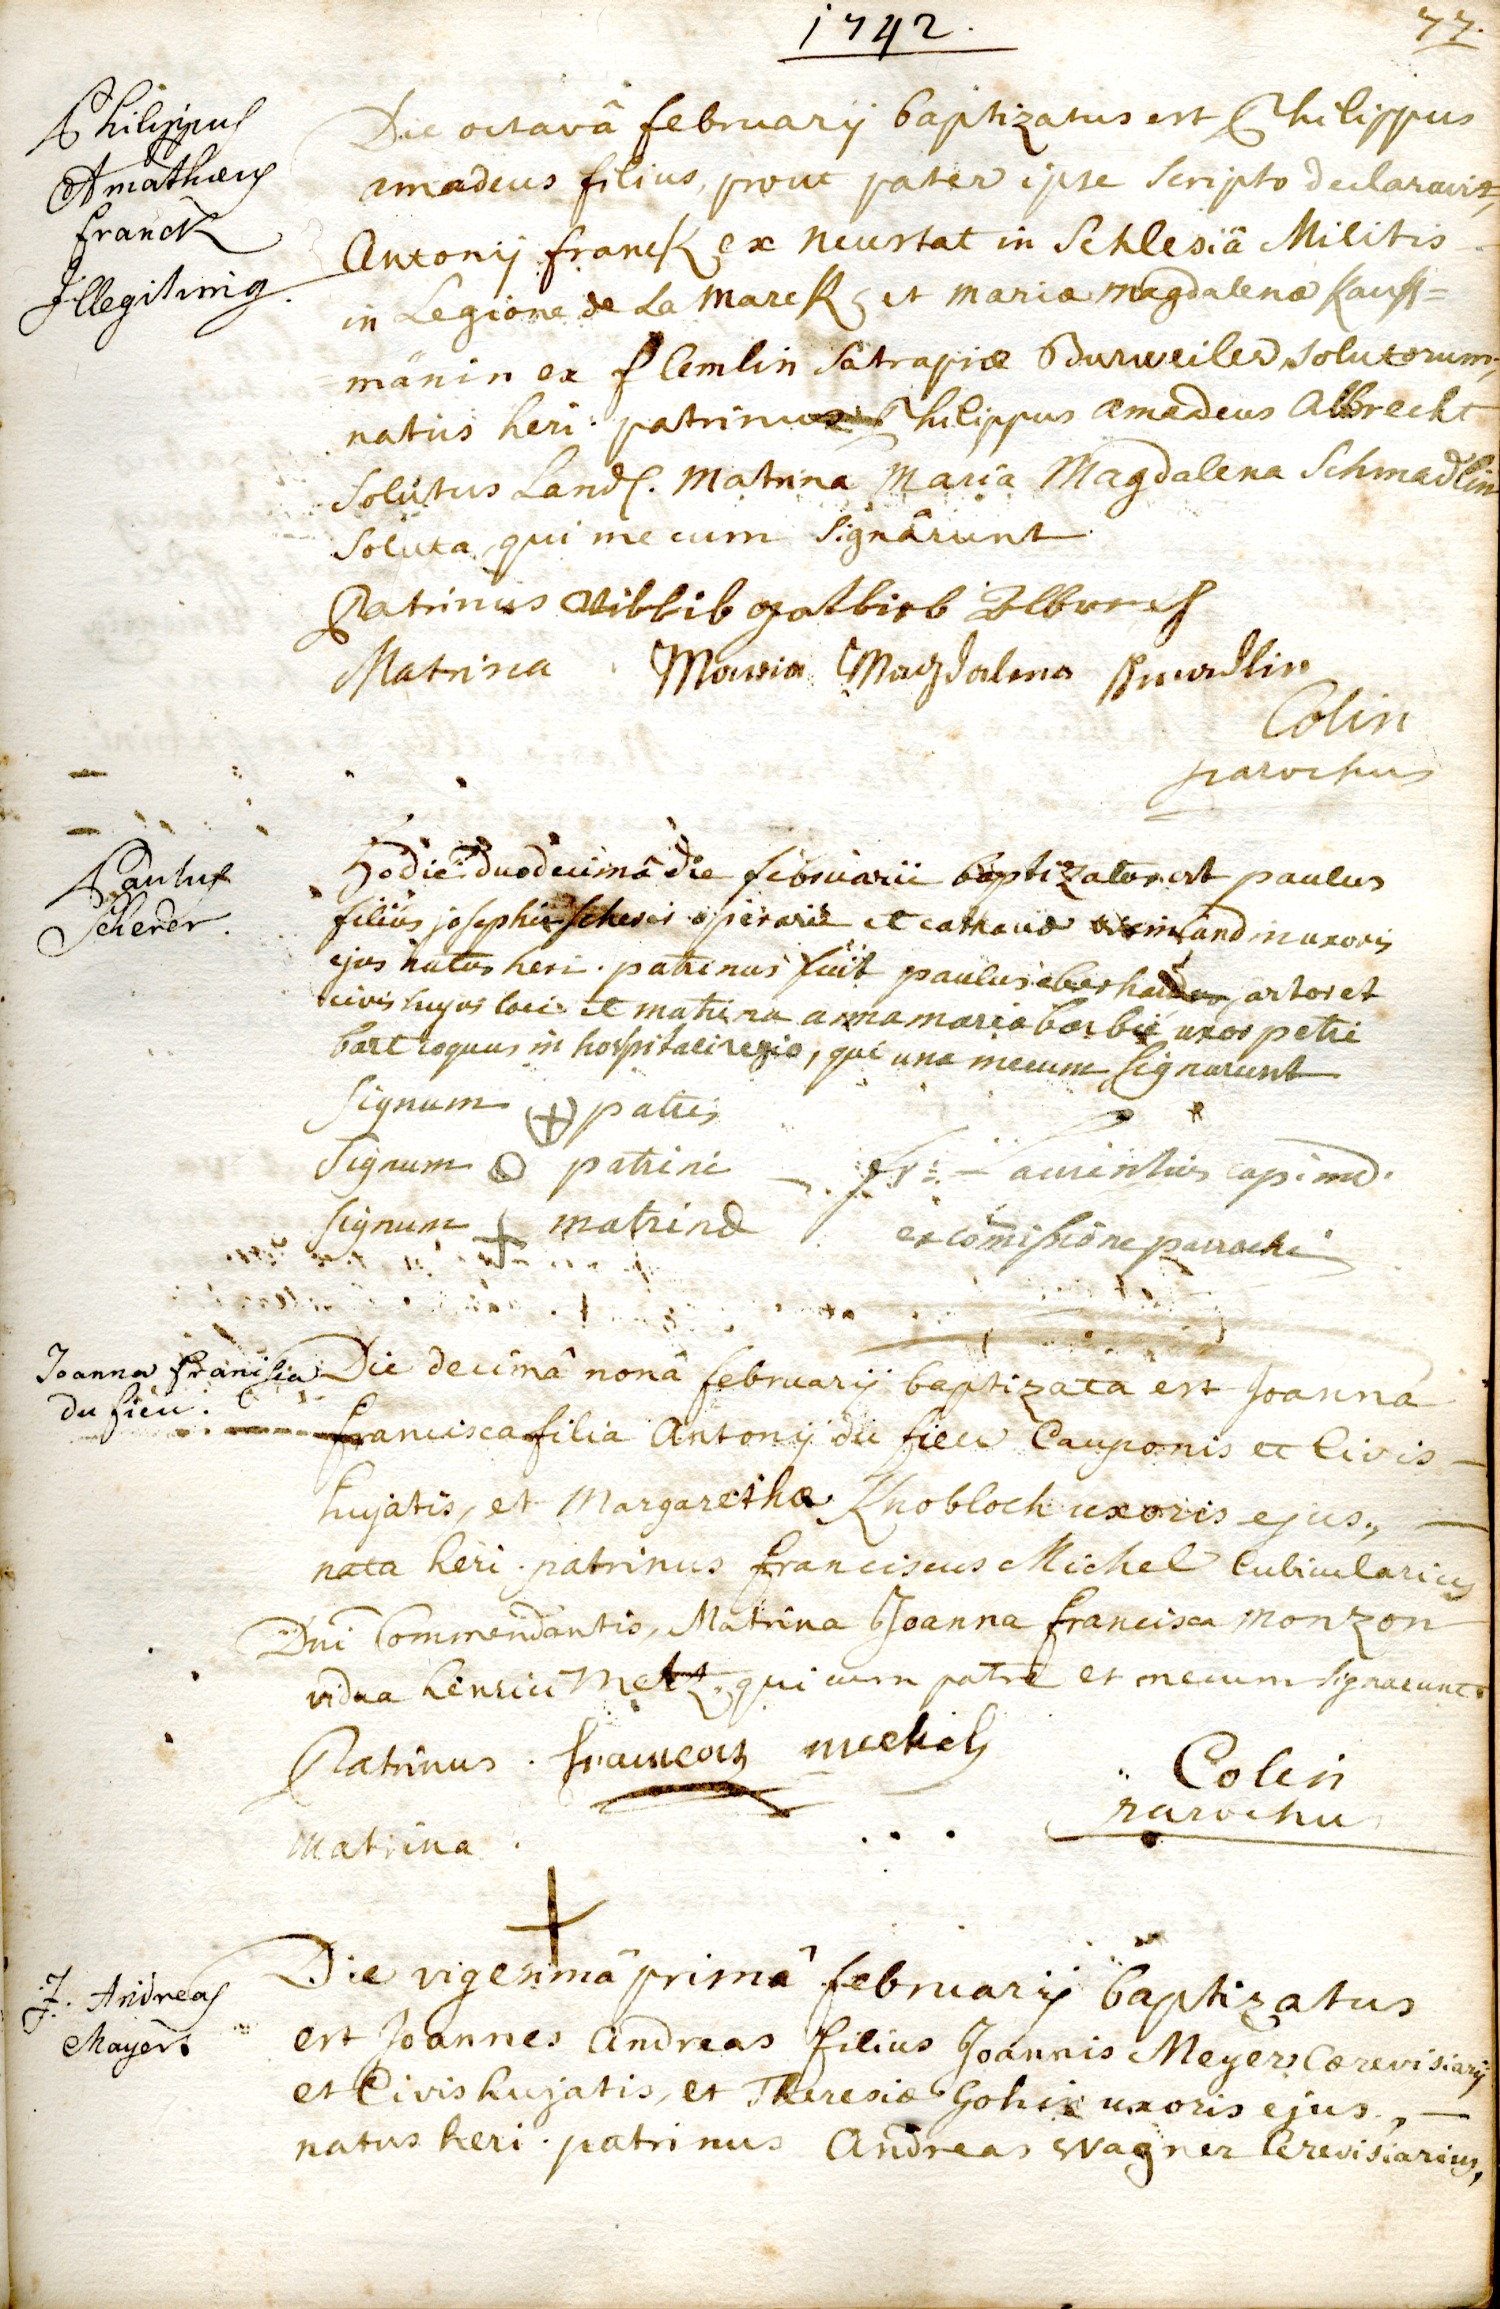 1742.
77.
Philippus
Amathæus
franck
Illegitimus.
Die octavâ februarij baptizatus est Philippus
amadeus filius, prout pater ipse scripto declaravit,
Antonij franck ex neustat in Schlesiâ Militis
in Legione de La Marck, et mariæ magdalenæ Kauff=
=mänin ex flemlin Satrapiæ Burweiler, solutorum,
natus heri. patrinus Philippus amadeus Albrecht
solutus Land. Matrina Maria Magdalena Schmadlin
soluta, qui mecum signârunt
Patrinus
Matrina Maria Magdalena
Colin
parochus
Paulus
Scherer.
Hodie duodecimâ die februarii baptizatus est paulus
filius josephi scherer operarii et uxoris
ejus natus heri. patrinus fuit paulus et
civis hujus loci et matrina anna maria uxor petri
in hospitali regio, qui una mecum signarunt
signum patris
signum patrini fr: Laurentius
signum matrinæ
ex comissione parochi
Joanna francisca
du fieu.
Die decimâ nonâ februarij baptizata est Joanna
francisca filia Antonij du fieu Cauponis et Civis
hujatis, et Margarethæ Knobloch uxoris ejus,
nata heri. patrinus franciscus Michel Cubicularius
Dni Commendantis, Matrina Joanna francisca monzon
vidua henrici Metz, qui cum patre et mecum signarunt.
Patrinus. francois mechel
Colin
parochus
Matrina.
J. Andreas
Mayer
Die vigesimâ primâ februarij baptizatus
est Joannes Andreas filius Joannis Meyer Cærevisiarij
et Civis hujatis, et Theresiæ uxoris ejus,
natus heri. patrinus Andreas Wagner Cerevisiarius,